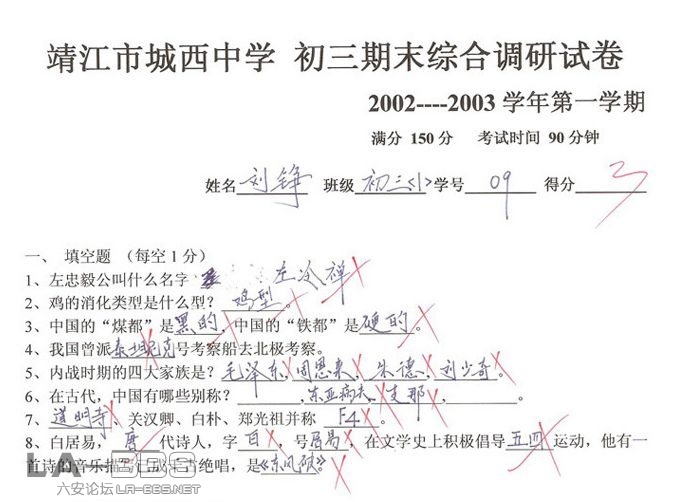 靖江市城西中学 初三期末综合调研试卷
2002----2003 学年第一学期
满分 150 分 考试时间 90 分钟
姓名 刘铮 班级 初三<1> 学号 09 得分 3
一、 填空题 （每空 1 分）
1、左忠毅公叫什么名字 左冷禅
2、鸡的消化类型是什么型？ 鸡型 。
3、中国的“煤都”是 黑的 ，中国的“铁都”是 硬的 。
4、我国曾派 泰坦尼克 号考察船去北极考察。
5、内战时期的四大家族是？ 毛泽东 、 周恩来 、 朱德 、 刘少奇 。
6、在古代，中国有哪些别称？ 、 东亚病夫 、 支那 、 。
7、 道明寺 、关汉卿、白朴、郑光祖并称 F4 。
8、白居易， 唐 代诗人，字 白 ，号 居易 ，在文学史上积极倡导 五四 运动，他有一
首诗的音乐描 成 古绝唱，是 《东风破》
LA-BBS
六安论坛LA-BBS.NET